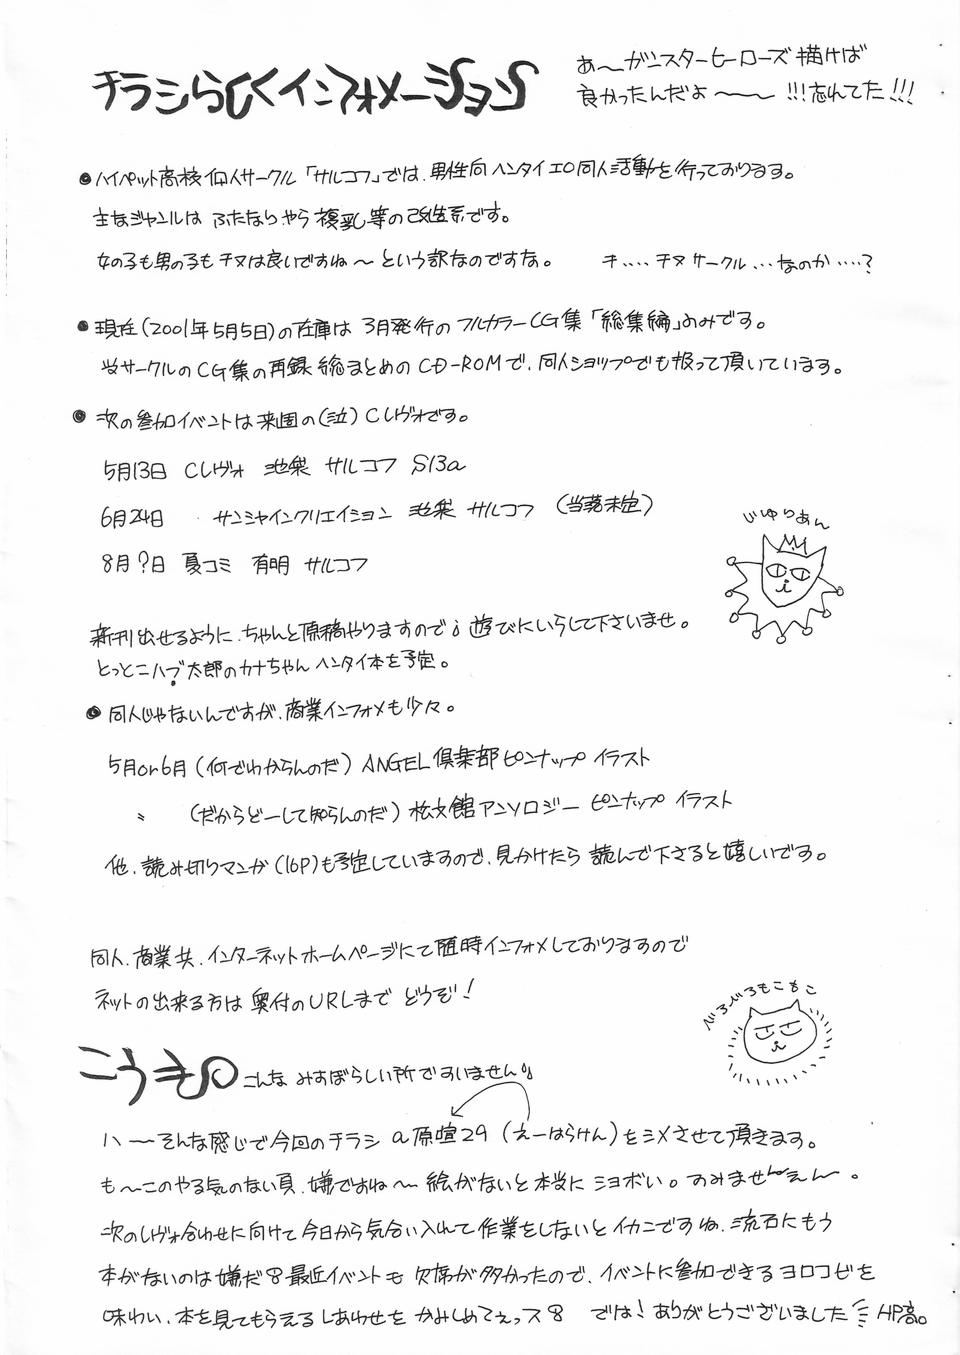 チラシらしくインフォメーション
あ〜ガンスターヒーローズ描けば
良かったんだよ〜〜 !!!忘れてた!!!
●ハイペット高校個人サークル「サルコフ」では、男性向ヘンタイエロ同人活動を行っております。
主なジャンルは ふたなりやら複乳等の改造系です。
女の子も男の子もチヌは良いですね〜という訳なのですな。 チ‥‥チヌサークル…なのか‥‥?
●現在(2001年5月5日)の在庫は3月発行のフルカラーCG集「総集編」のみです。
当サークルのCG集の再録総まとめのCD-ROMで、同人ショップでも扱って頂いています。
●次の参加イベントは来週の(泣)Cレヴォです。
5月13日 Cレヴォ 池袋 サルコフ S13a
6月24日 サンシャインクリエイション 池袋 サルコフ (当落未定)
8月?日 夏コミ 有明 サルコフ
じゆりあん
新刊出せるように、ちゃんと原稿やりますので、遊びにいらして下さいませ。
とっとこハブ太郎のカナちゃんヘンタイ本を予定。
●同人じゃないんですが、商業インフォメも少々。
5月or6月(何でわからんのだ) ANGEL倶楽部ピンナップ イラスト
〃 (だからどーして知らんのだ)松文館アンソロジー ピンナップ イラスト
他、読み切りマンガ(16P)も予定していますので、見かけたら 読んで下さると嬉しいです。
同人、商業共、インターネットホームページにて随時インフォメしておりますので
ネットの出来る方は奥付のURLまで どうぞ!
べろべろもこもこ
こうき こんな みすぼらしい所ですいません
ハ〜そんな感じで今回のチラシ a原喧29(えーはらけん)をシメさせて頂きます。
も〜このやる気のない頁、嫌ですね〜 絵がないと本当に ショボい。すみませ〜えん〜。
次のレヴォ合わせに向けて今日から気合い入れて作業をしないとイカンですね、流石にもう
本がないのは嫌だ 最近イベントも 欠席が多かったので、イベントに参加できるヨロコビを
味わい、本を見てもらえるしあわせを かみしめてえっス では!ありがとうございました HP高。